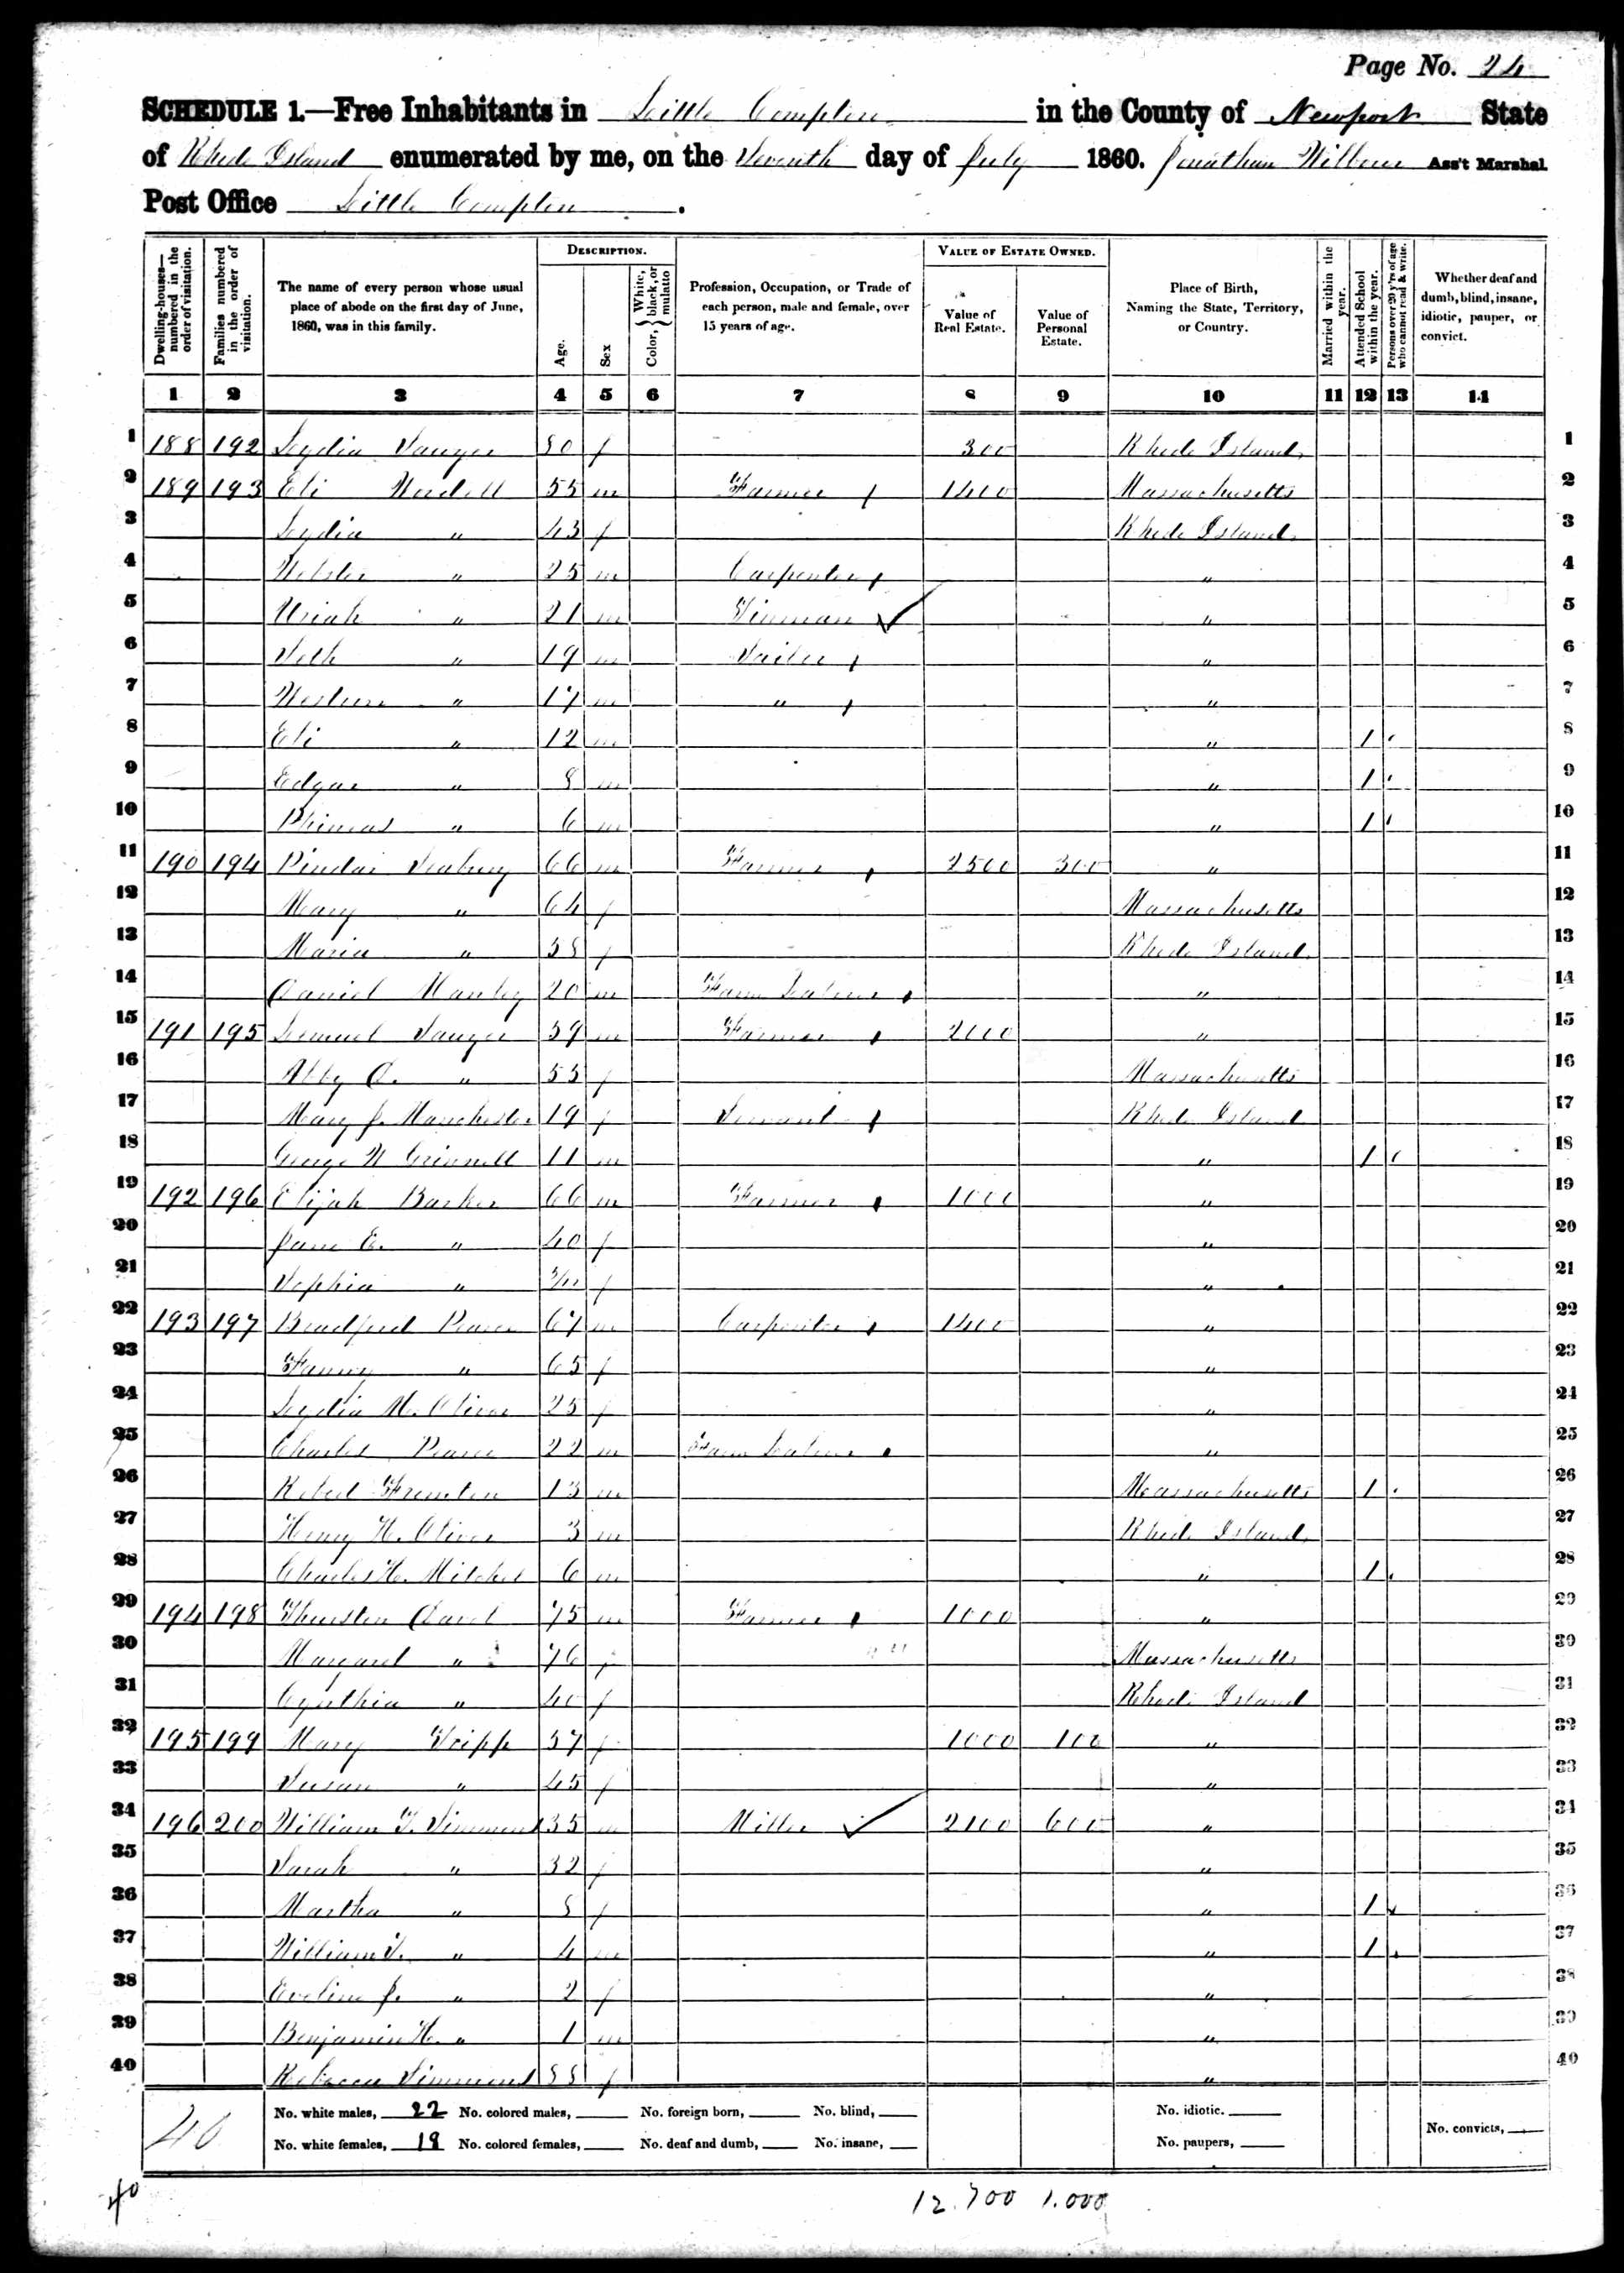 Page No. 24
SCHEDULE 1.—Free Inhabitants in Little Compton in the County of Newport State
of Rhode Island enumerated by me, on the Seventh day of July 1860. Jonathan Wilbour Ass't Marshal.
Post Office Little Compton.
Dwelling-houses—numbered in the order of visitation.
Families numbered in the order of visitation.
The name of every person whose usual place of abode on the first day of June, 1860, was in this family.
DESCRIPTION.
Age.
Sex
Color, White, black, or mulatto
Profession, Occupation, or Trade of each person, male and female, over 15 years of age.
VALUE OF ESTATE OWNED.
Value of Real Estate.
Value of Personal Estate.
Place of Birth, Naming the State, Territory, or Country.
Married within the year.
Attended School within the year.
Persons over 20 y'rs of age who cannot read & write.
Whether deaf and dumb, blind, insane, idiotic, pauper, or convict.
1 2 3 4 5 6 7 8 9 10 11 12 13 14
1 188 192 Lydia Sawyer 80 f 300 Rhode Island 1
2 189 193 Eli 55 m Farmer 1400 Massachusetts 2
3 Lydia " 43 f Rhode Island 3
4 Webster " 25 m Carpenter " 4
5 Uriah " 21 m Tinman " 5
6 Seth " 19 m " 6
7 " 17 m " " 7
8 Eli " 12 m " 1 8
9 Edgar " 8 m " 1 9
10 Phineas " 6 m " 1 10
11 190 194 Pindar Seabury 66 m Farmer 2500 300 " 11
12 Mary " 64 f Massachusetts 12
13 Maria " 38 f Rhode Island 13
14 Daniel Manley 20 m Farm Laborer " 14
15 191 195 Lemuel Sawyer 59 m Farmer 2000 " 15
16 Abby D. " 55 f Massachusetts 16
17 Mary J. Manchester 19 f Servant Rhode Island 17
18 George W Grinnell 11 m " 1 18
19 192 196 Elijah Barker 66 m Farmer 1000 " 19
20 Jane E. " 40 f " 20
21 Sophia " f " 21
22 193 197 Bradford Pearce 67 m Carpenter 1400 " 22
23 Fanny " 65 f " 23
24 Lydia M. Oliver 25 f " 24
25 Charles Pearce 22 m Farm Laborer " 25
26 Robert 13 m Massachusetts 1 26
27 Henry H. Oliver 3 m Rhode Island 27
28 Charles H. Mitchel 6 m " 1 28
29 194 198 Thurston Davol 75 m Farmer 1000 " 29
30 " 76 f Massachusetts 30
31 Cynthia " 40 f Rhode Island 31
32 195 199 Mary Tripp 57 f 1000 100 " 32
33 Susan " 45 f " 33
34 196 200 William T. Simmons 35 m Miller 2100 600 " 34
35 Sarah " 32 f " 35
36 Martha " 8 f " 1 36
37 William T. " 4 m " 1 37
38 Eveline J. " 2 f " 38
39 Benjamin H. " 1 m " 39
40 Rebecca Simmons 88 f " 40
40
No. white males, 22 No. colored males, No. foreign born, No. blind, No. idiotic.
No. white females, 19 No. colored females, No. deaf and dumb, No. insane, No. paupers, No. convicts,
40
12.700 1.000